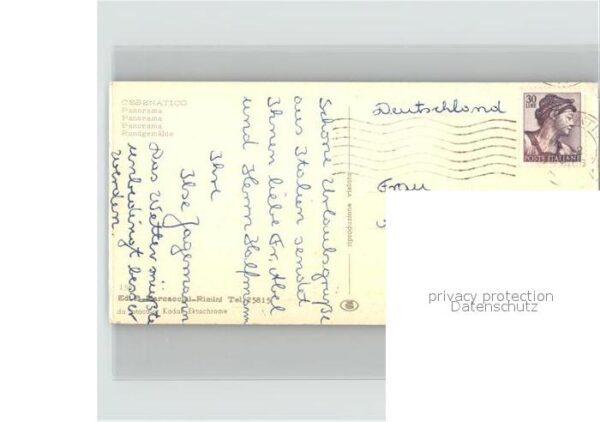 CESENATICO
Panorama
Panorama
Panorama
Rundgemälde
Schöne Urlaubsgrüße
aus Italien sendet
Ihnen liebe Fr. Abel
und Herrn Halfmann
Ihre
Ilse Jagemann
Das Wetter müßte
unbedingt besser
werden
Deutschland
Frau
30
LIRE
POSTE ITALIANE
riproduzione vietata
Rimini Tel. 25815
da fotocolor Kodak Ektachrome
privacy protection
Datenschutz